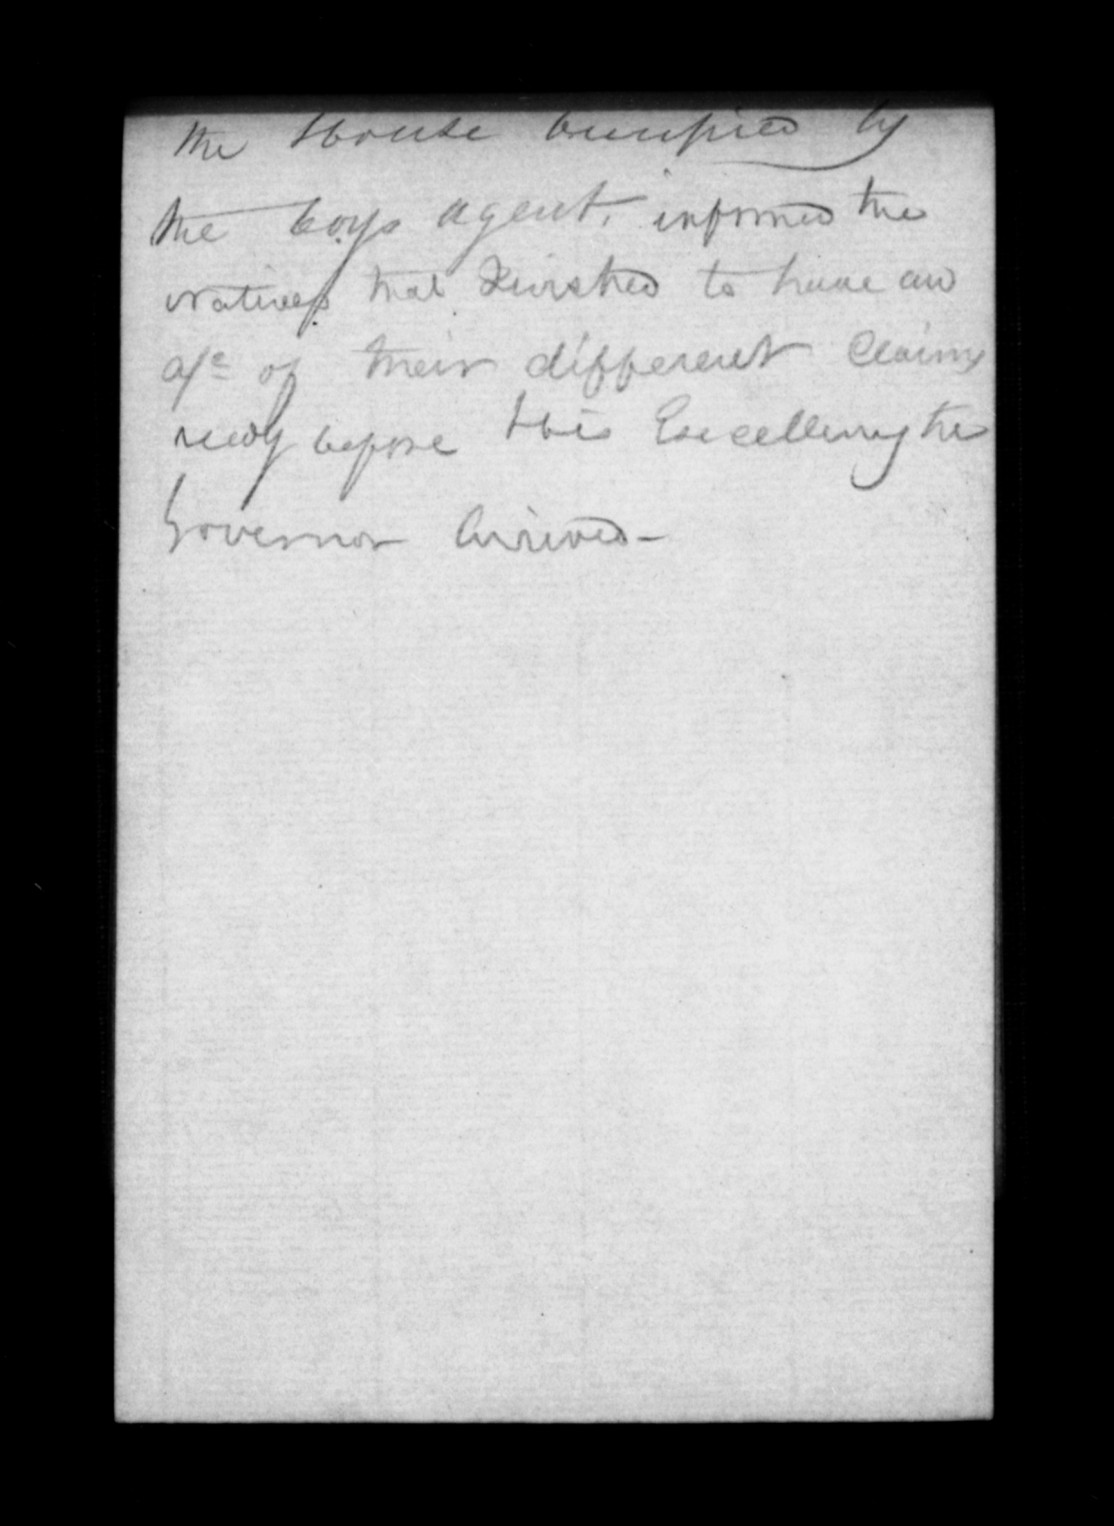 the House occupied by
the Coys agent, informed the
natives that I wished to have an
a/c of their different Claims
ready before His Excellency the
Governor Arrived -